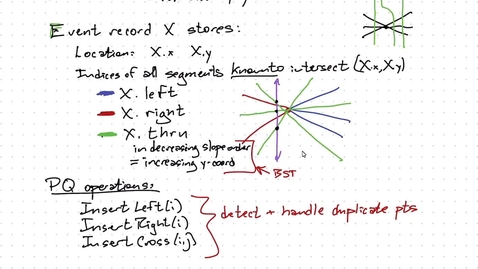 Event record X stores:
Location: X.x X.y
Indices of all segments known to intersect (X.x, X.y)
X. left
X. right
X. thru
in decreasing slope order
= increasing y-coord
BST
PQ operations:
Insert Left(i)
Insert Right(i)
Insert Cross(i,j)
detect + handle duplicate pts